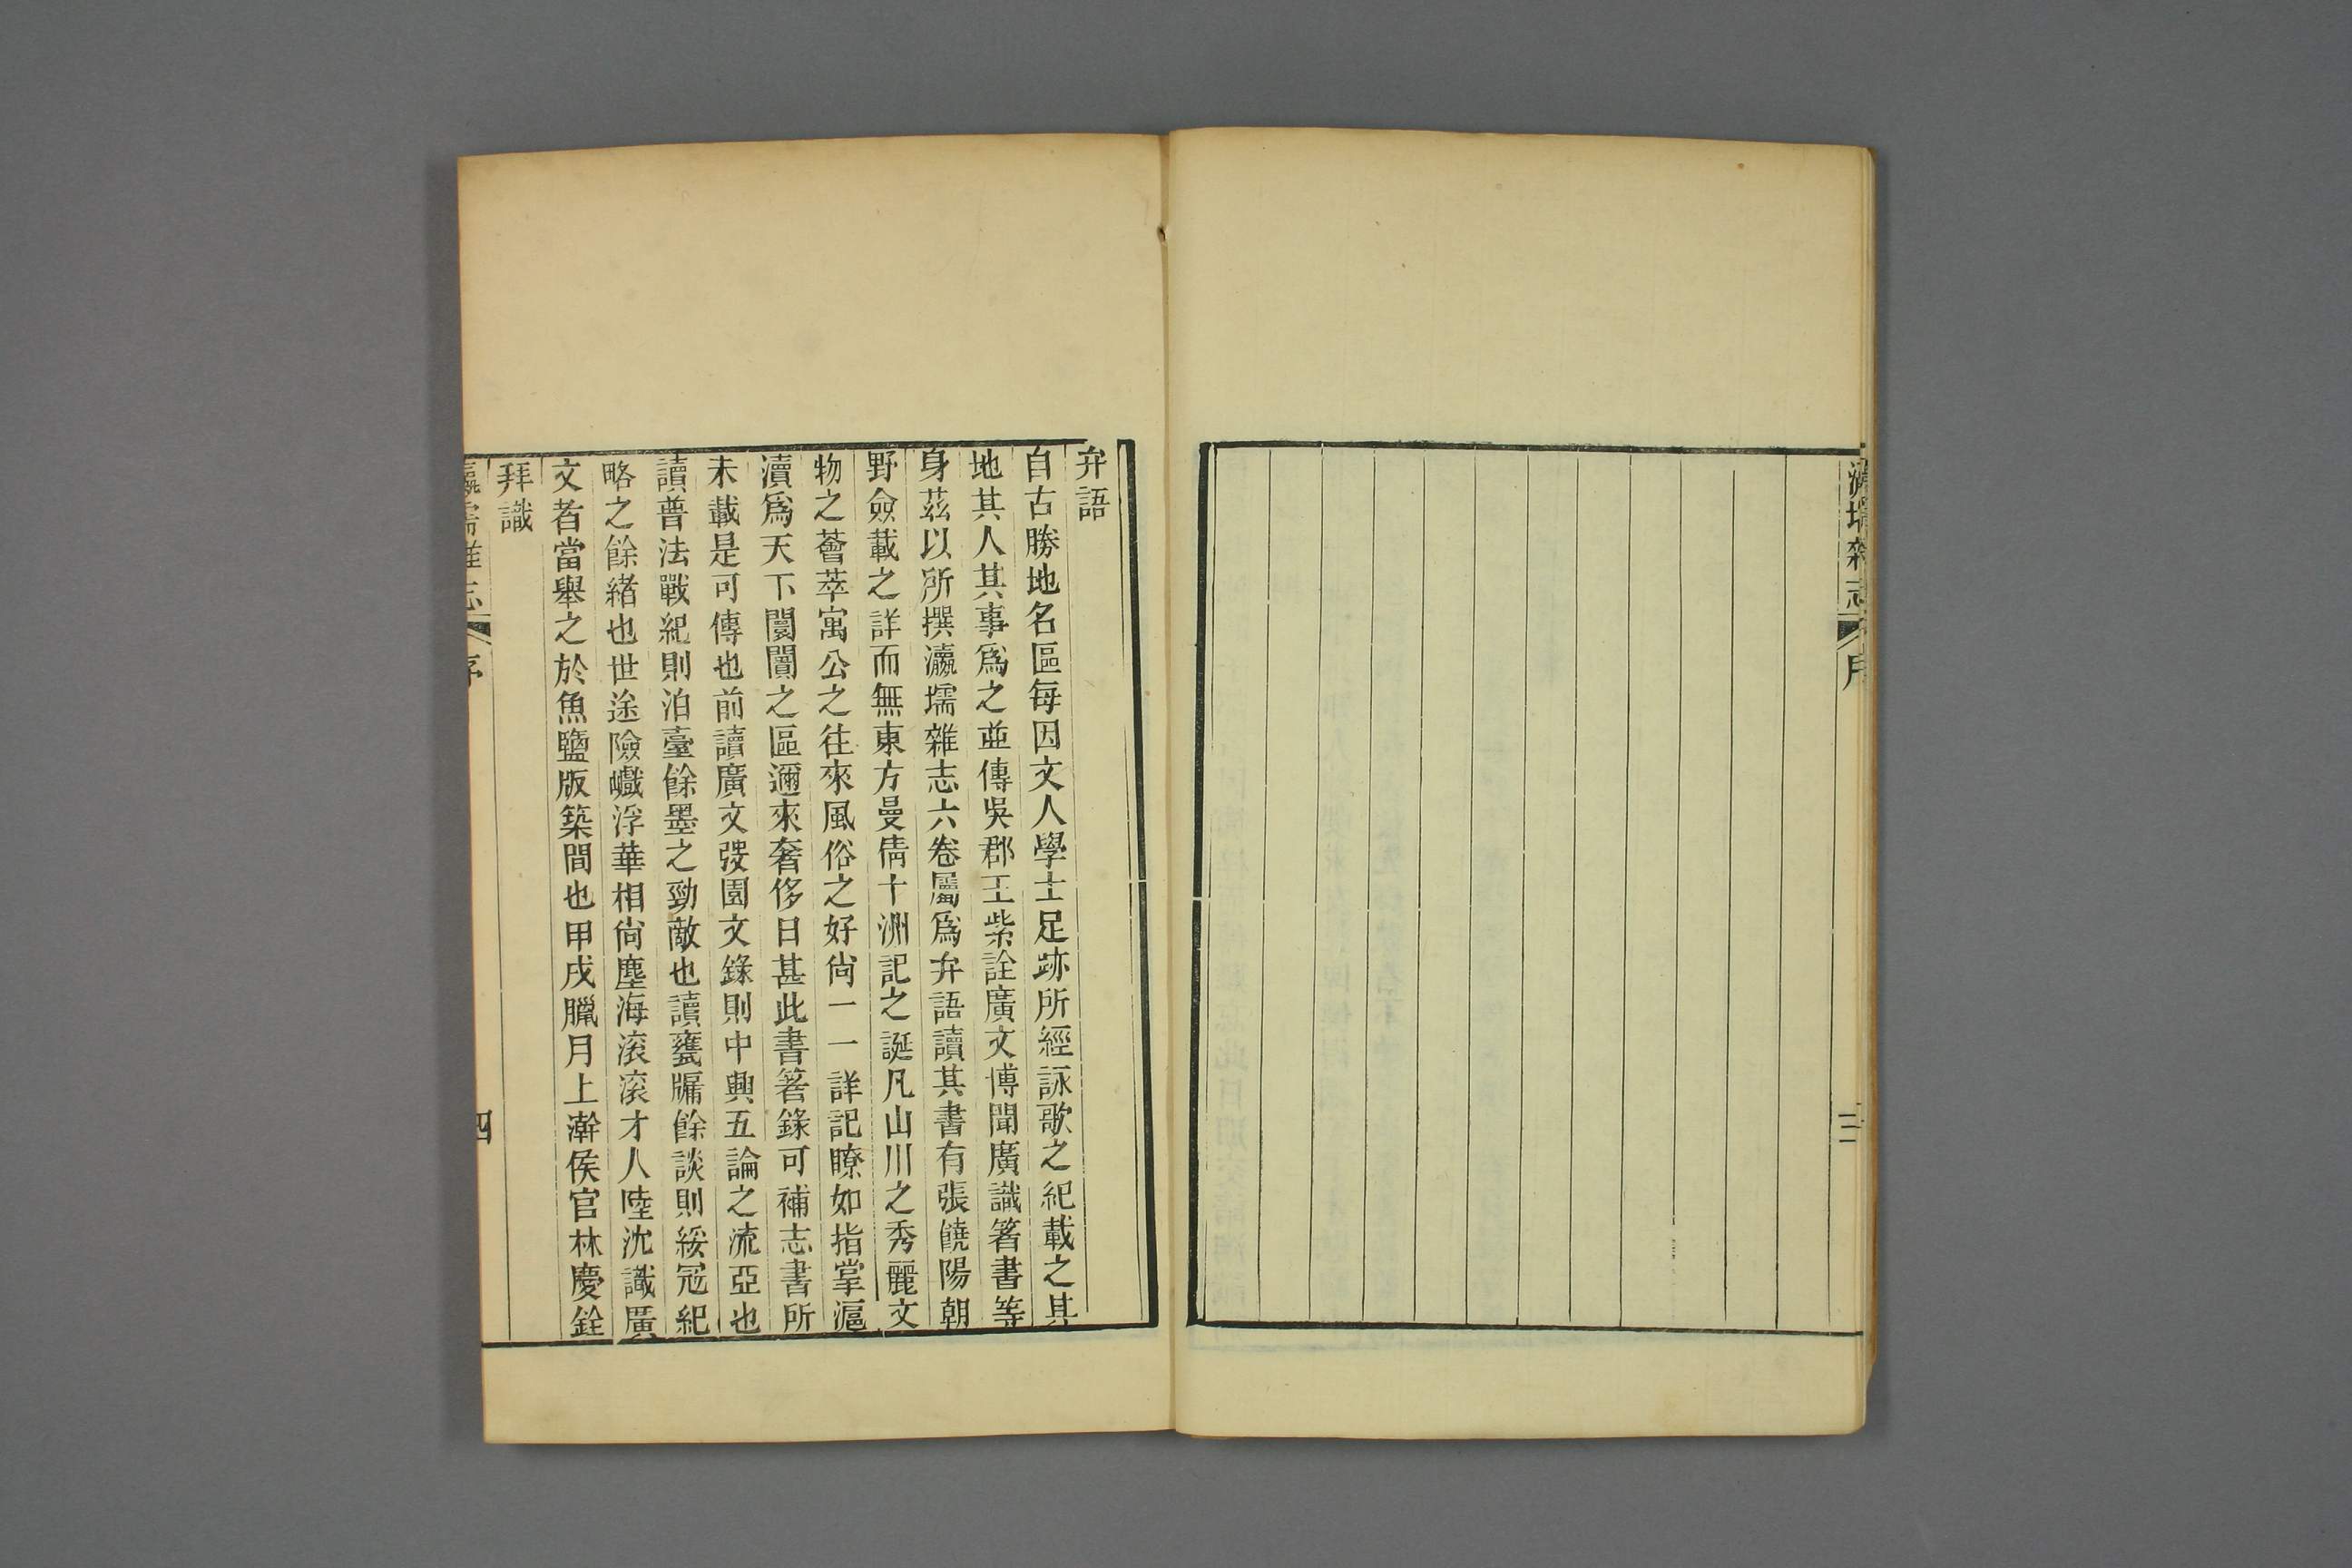 瀛壖雜志
序
三
弁語
自古勝地名區每因文人學士足跡所經詠歌之紀載之其
地其人其事爲之並傳吳郡王紫詮廣文博聞廣識箸書等
身茲以所撰瀛壖雜志六卷屬爲弁語讀其書有張饒陽朝
野僉載之詳而無東方曼倩十洲記之誕凡山川之秀麗文
物之薈萃寓公之往來風俗之好尙一一詳記瞭如指掌滬
瀆爲天下闤闠之區邇來奢侈日甚此書箸錄可補志書所
未載是可傳也前讀廣文弢園文錄則中興五論之流亞也
讀普法戰紀則泊臺餘墨之勁敵也讀甕牖餘談則綏寇紀
略之餘緒也世途險巇浮華相尙塵海滚滚才人陸沈識廣
文者當舉之於魚鹽版築間也甲戌臘月上澣侯官林慶銓
拜識
瀛壖雜志
序
四